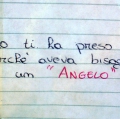 o ti ha preso
rchè aveva bisog
un "ANGELO"